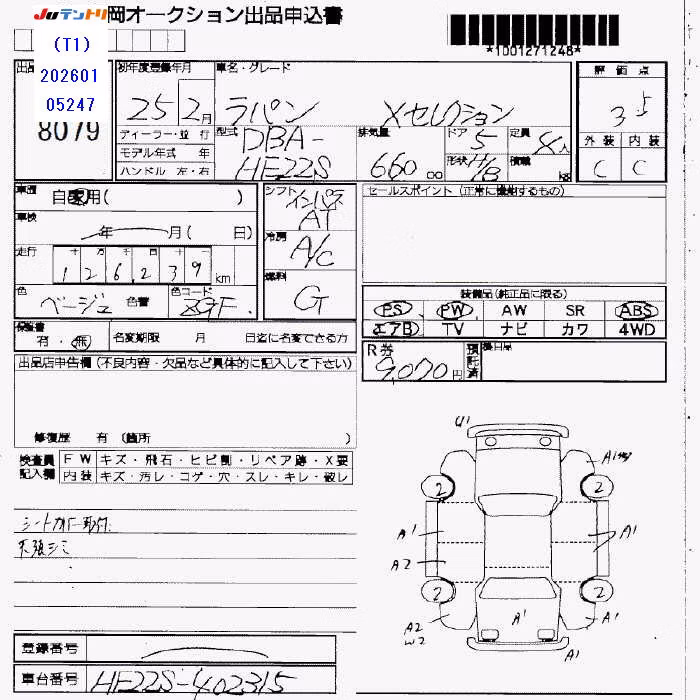 JUテントリ 岡オークション出品申込書
(T1)
*1001271248*
202601
05247
8079
初年度登録年月
25年2月
車名・グレード
ラパン Xセレクション
評価点
3.5
外装 内装
C C
ディーラー・並行
モデル年式 年
ハンドル 左・右
型式
DBA-
HE22S
排気量
660 cc
ドア
5
形状 H/B
定員
4人
積載
kg
車歴
自家用( )
車検
年 月( 日)
走行
十 万 千 百 十
126,239 km
色
ベージュ 色替
色コード
ZGF
シフト
インパネ
AT
冷房
A/C
燃料
G
セールスポイント (正常に機能するもの)
装備品(純正品に限る)
PS PW AW SR ABS
エアB TV ナビ カワ 4WD
保証書
有・無
名変期限 月 日迄に名変できる方
R券
9,070円
預託済
出品店申告欄(不良内容・欠品など具体的に記入して下さい)
修復歴 有 (箇所 )
検査員
記入欄
FW キズ・飛石・ヒビ割・リペア跡・X要
内装 キズ・汚レ・コゲ・穴・スレ・キレ・破レ
シートカバー取付
天張シミ
U1
A1
2
2
A1
A1
A2
2
2
A2
W2
A1
A1
A1
登録番号
車台番号
HE22S-402315